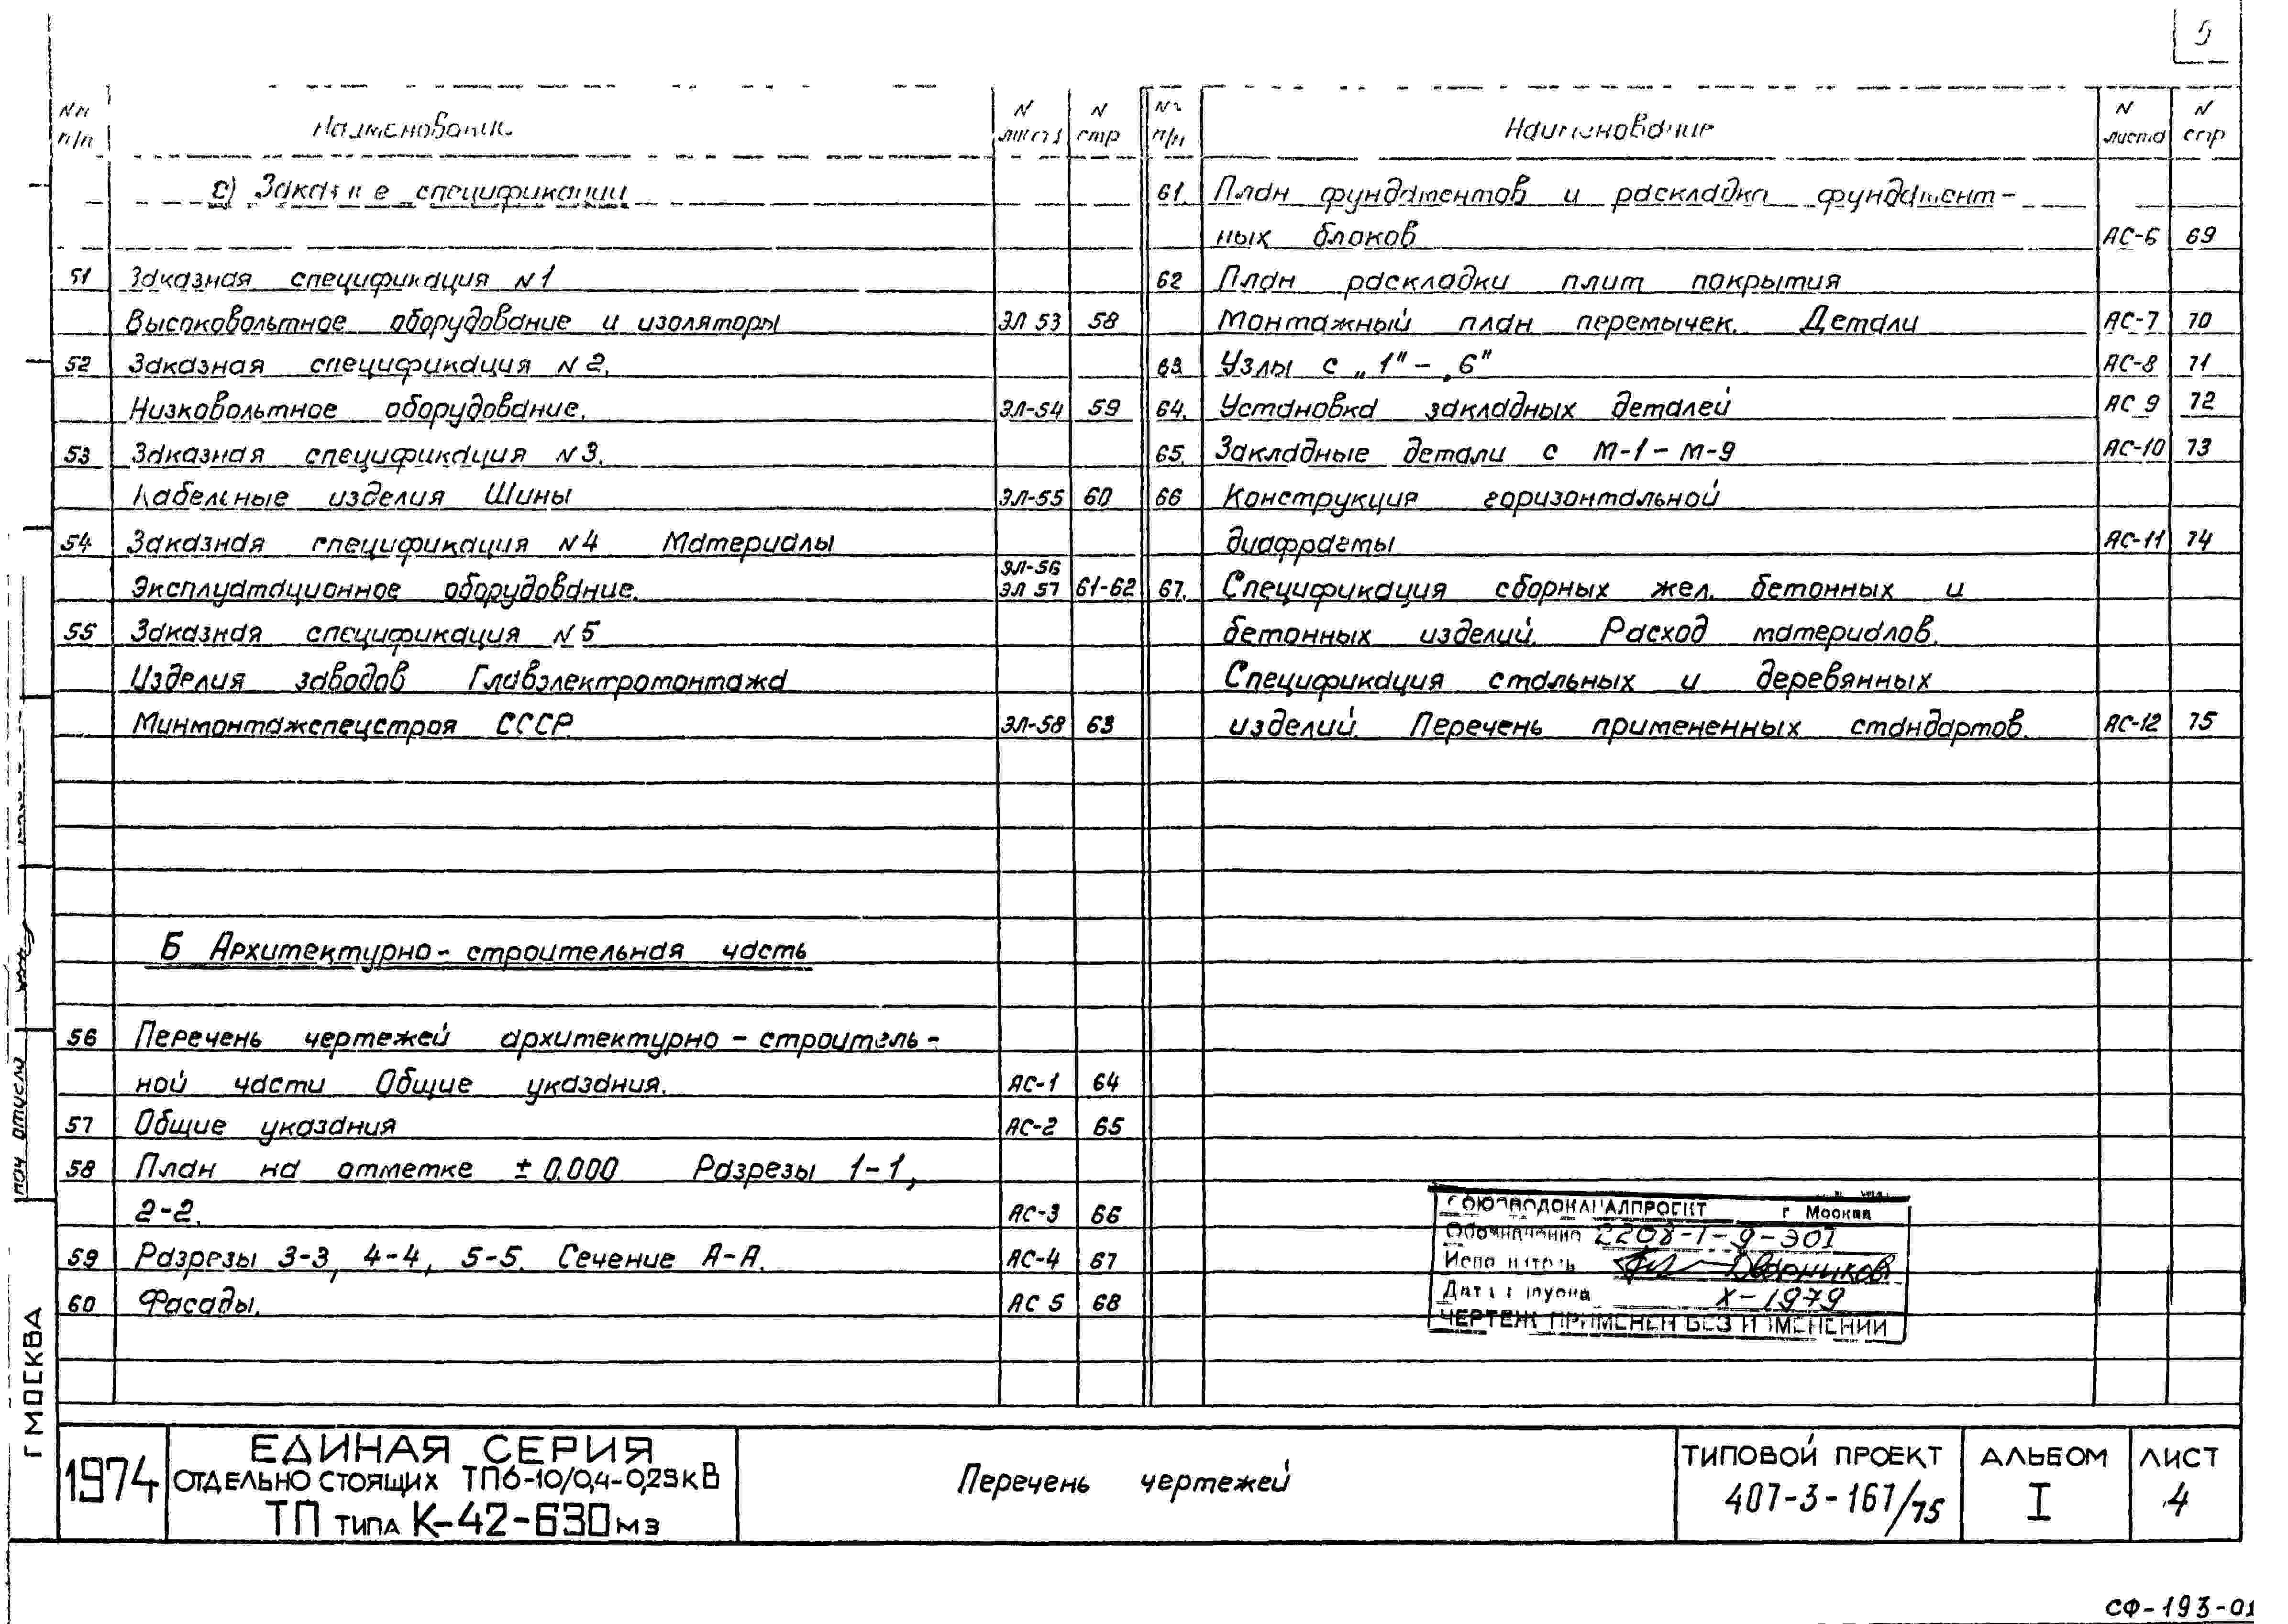 5
NN п/п Наименование N листа N стр
с) Заказные спецификации
51 Заказная спецификация N1
Высоковольтное оборудование и изоляторы ЭЛ 53 58
52 Заказная спецификация N2.
Низковольтное оборудование. ЭЛ-54 59
53 Заказная спецификация N3.
Кабельные изделия Шины ЭЛ-55 60
54 Заказная спецификация N4 Материалы
ЭЛ-56
Эксплуатационное оборудование. ЭЛ 57 61-62
55 Заказная спецификация N5
Изделия заводов Главэлектромонтажа
Минмонтажспецстроя СССР ЭЛ-58 63
Б Архитектурно-строительная часть
56 Перечень чертежей архитектурно-строитель-
ной части Общие указания. АС-1 64
57 Общие указания АС-2 65
58 План на отметке ± 0.000 Разрезы 1-1,
2-2. АС-3 66
59 Разрезы 3-3, 4-4, 5-5. Сечение А-А. АС-4 67
60 Фасады. АС 5 68
п/п Наименование N листа N стр
61. План фундаментов и раскладка фундамент-
ных блоков АС-6 69
62 План раскладки плит покрытия
Монтажный план перемычек. Детали АС-7 70
63. Узлы с „1"-„6" АС-8 71
64. Установка закладных деталей АС 9 72
65. Закладные детали с М-1-М-9 АС-10 73
66 Конструкция горизонтальной
диафрагмы АС-11 74
67. Спецификация сборных жел. бетонных и
бетонных изделий. Расход материалов.
Спецификация стальных и деревянных
изделий. Перечень примененных стандартов. АС-12 75
СОЮЗВОДОКАНАЛПРОЕКТ г Москва
Обозначение 2208-1-9-ЭО1
Исполнитель Дворников
Дата X-1979
ЧЕРТЕЖ ПРИМЕНЕН БЕЗ ИЗМЕНЕНИИ
Г МОСКВА
1974
ЕДИНАЯ СЕРИЯ
ОТДЕЛЬНО СТОЯЩИХ ТП6-10/0,4-0,23кВ
ТП ТИПА К-42-630 М3
Перечень чертежей
ТИПОВОЙ ПРОЕКТ
407-3-167/75
АЛЬБОМ
I
ЛИСТ
4
СФ-193-01